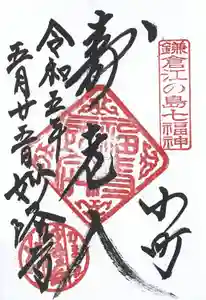 鎌倉江の島七福神
小町
寿老人
令和五年
正月廿五日妙隆寺